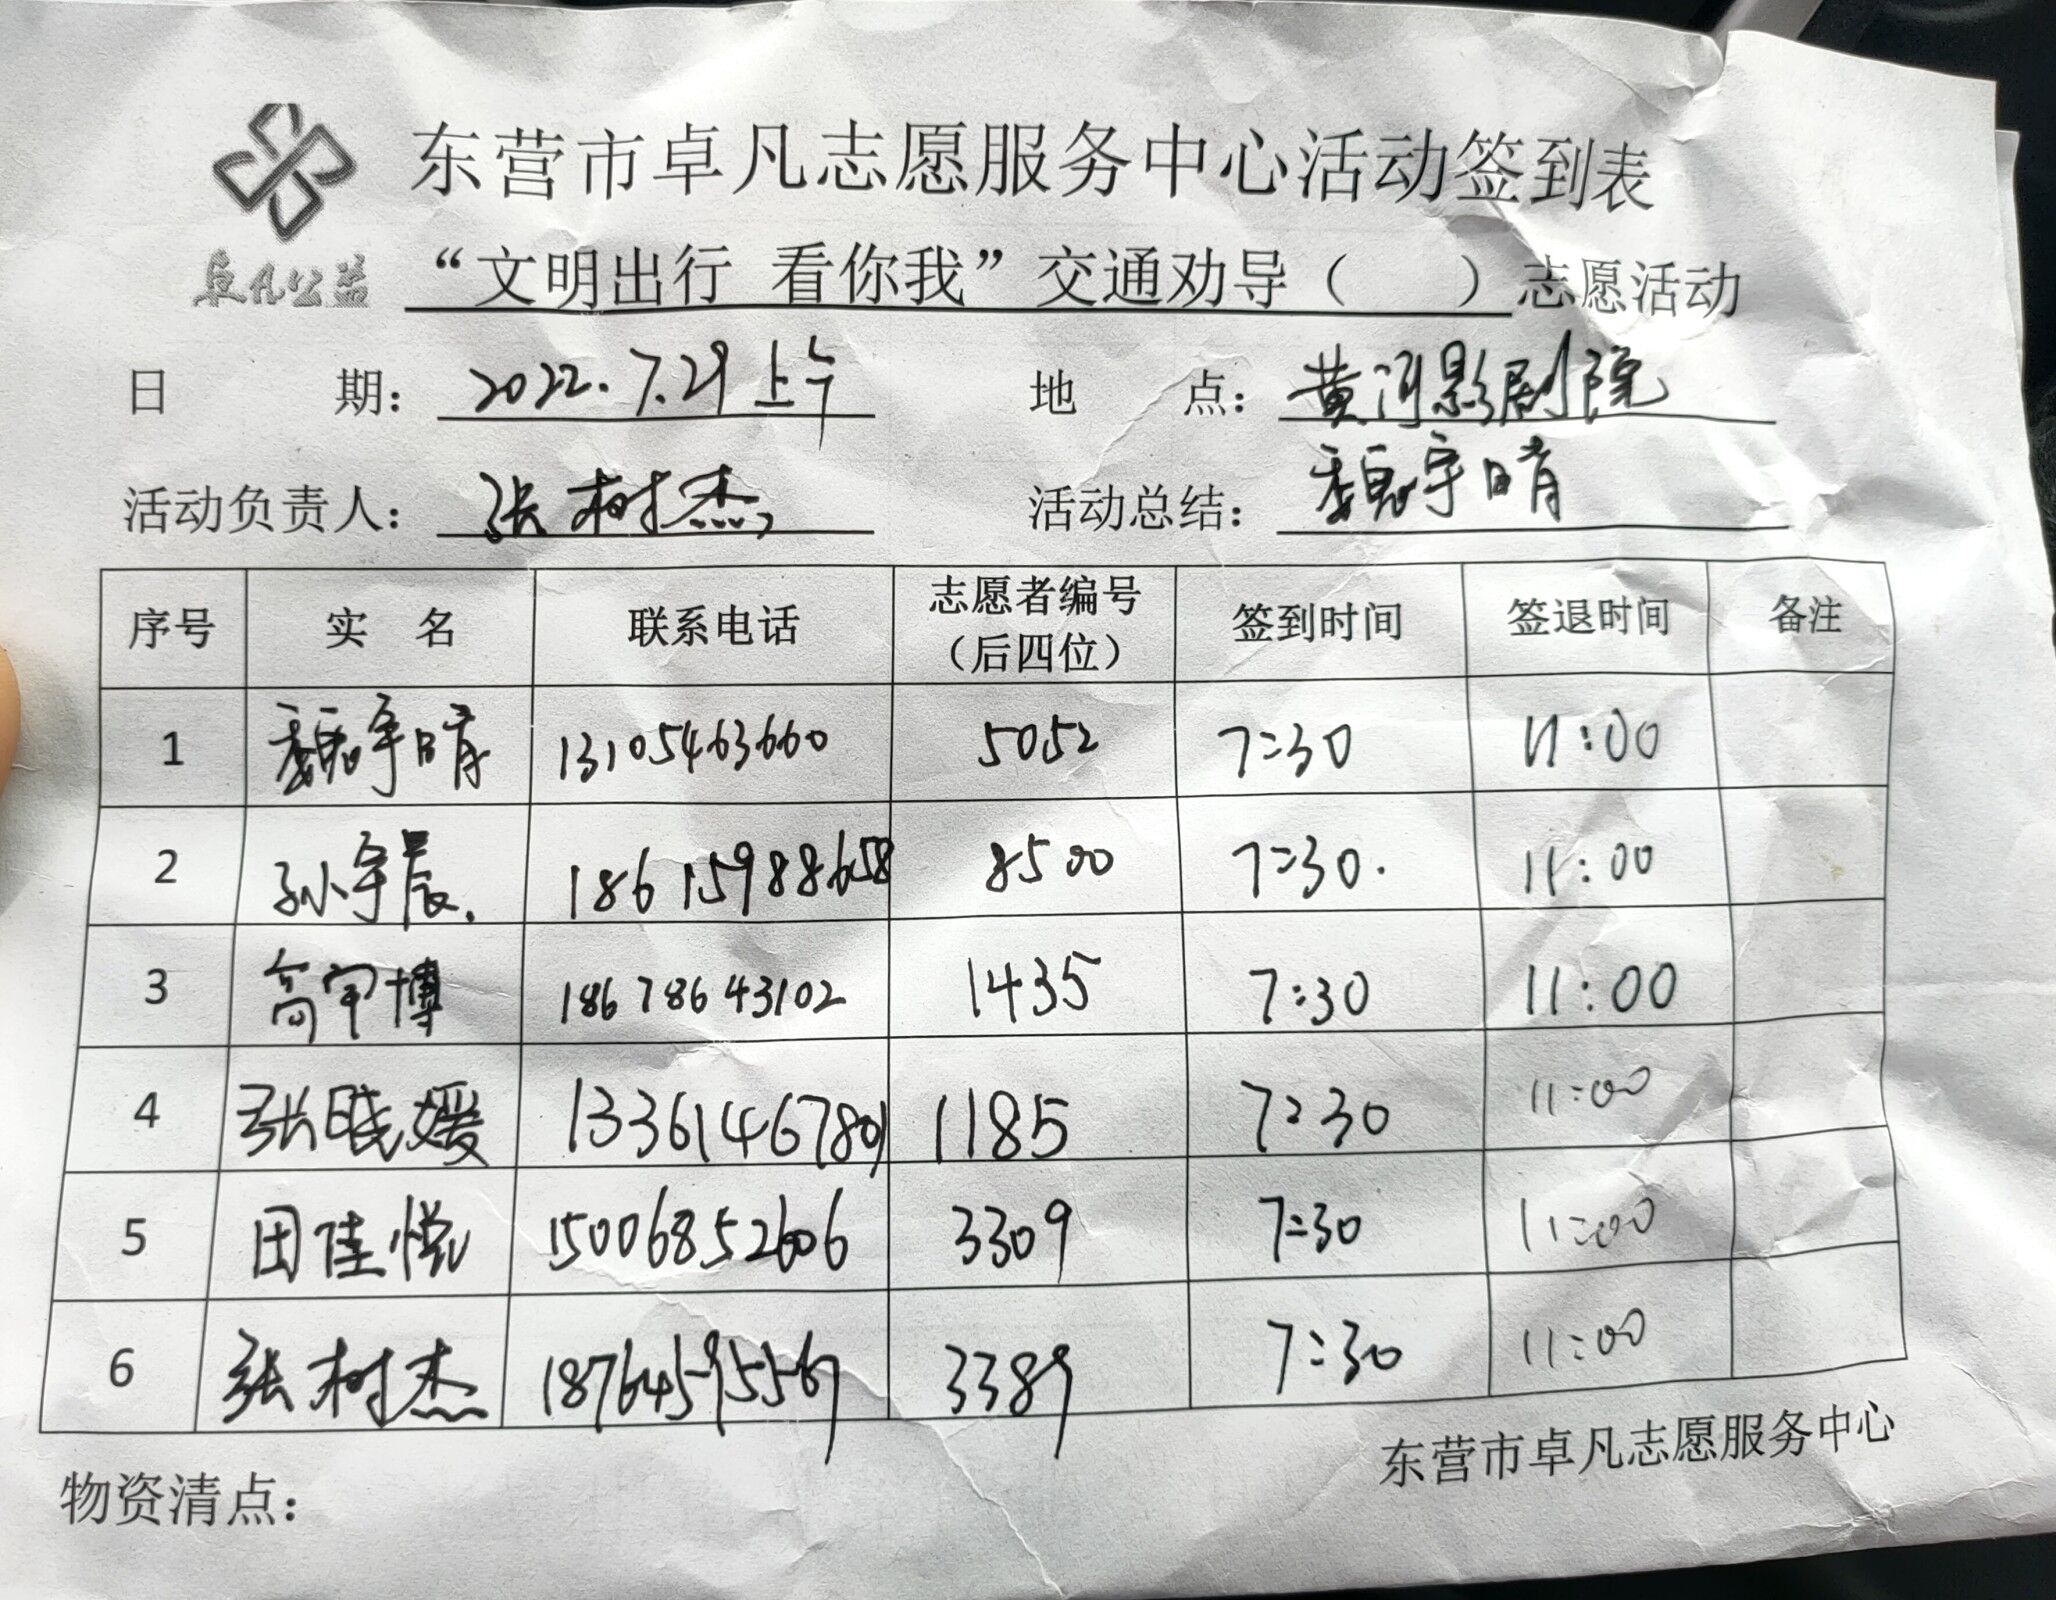 东营市卓凡志愿服务中心活动签到表
卓凡公益
“文明出行 看你我”交通劝导（ ）志愿活动
日 期：2022.7.29上午 地 点：黄河影剧院
活动负责人：张树杰 活动总结：魏宇晴
序号 实 名 联系电话 志愿者编号（后四位） 签到时间 签退时间 备注
1 魏宇晴 13105463660 5052 7:30 11:00
2 孙宇晨 18615988658 8500 7:30 11:00
3 高宇博 18678643102 1435 7:30 11:00
4 张晓媛 13361467801 1185 7:30 11:00
5 田佳悦 15006852606 3309 7:30 11:00
6 张树杰 3389 7:30 11:00
东营市卓凡志愿服务中心
物资清点：